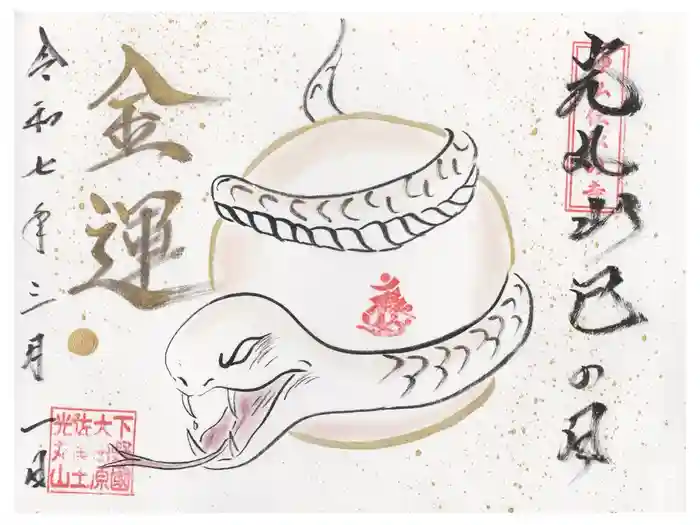 光丸山巳の日
金運
令和七年三月一日
下野國
大田原
佐久土
光丸山